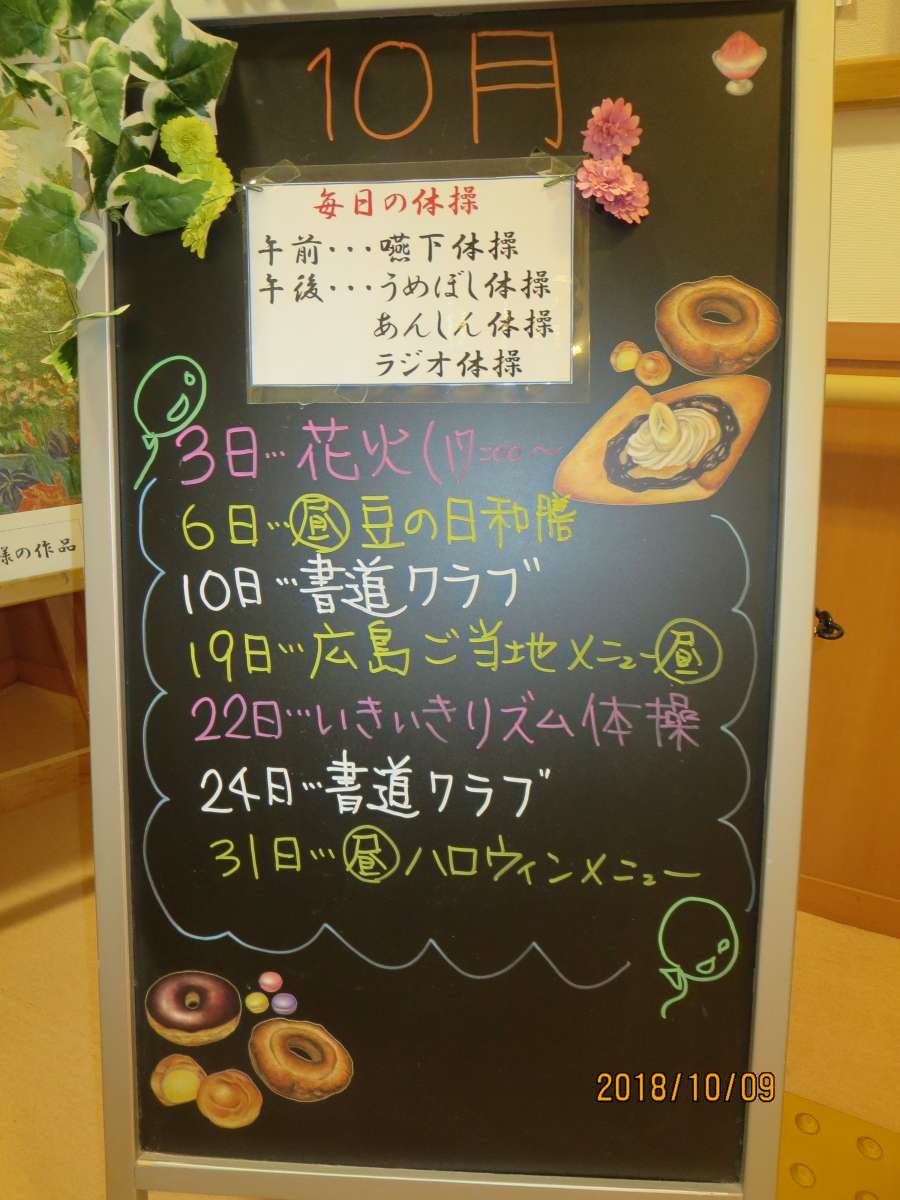 10月
毎日の体操
午前・・・嚥下体操
午後・・・うめぼし体操
あんしん体操
ラジオ体操
3日…花火(17:00〜
6日…昼豆の日和膳
10日…書道クラブ
19日…広島ご当地メニュー昼
22日…いきいきリズム体操
24日…書道クラブ
31日…昼ハロウィンメニュー
様の作品
2018/10/09